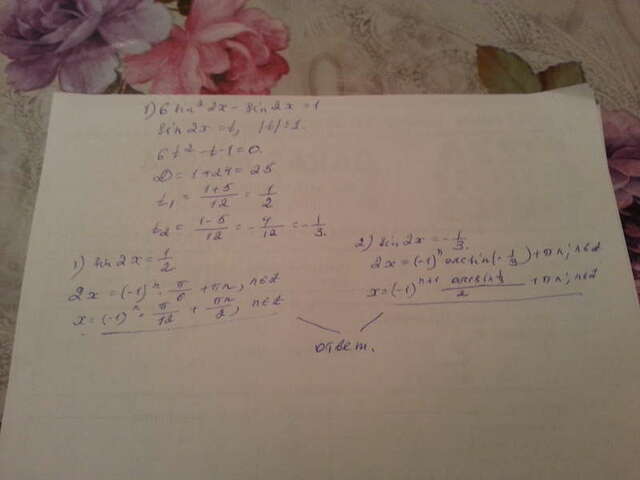 1) 6 sin² 2x - sin 2x = 1
sin 2x = t, |t|≤1.
6t² - t - 1 = 0.
D = 1 + 24 = 25
t₁ = (1+5)/12 = 1/2
t₂ = (1-5)/12 = -4/12 = -1/3.
1) sin 2x = 1/2
2x = (-1)ⁿ · π/6 + πn, n∈Z
x = (-1)ⁿ · π/12 + πn/2, n∈Z
2) sin 2x = -1/3.
2x = (-1)ⁿ arcsin(-1/3) + πn; n∈Z
x = (-1)ⁿ⁺¹ (arcsin 1/3)/2 + πn; n∈Z
ответ.